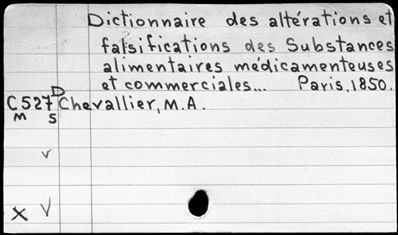 Dictionnaire des altérations et
falsifications des Substances
alimentaires médicamenteuses
et commerciales... Paris, 1850.
D
C527 Chevallier, M.A.
M S